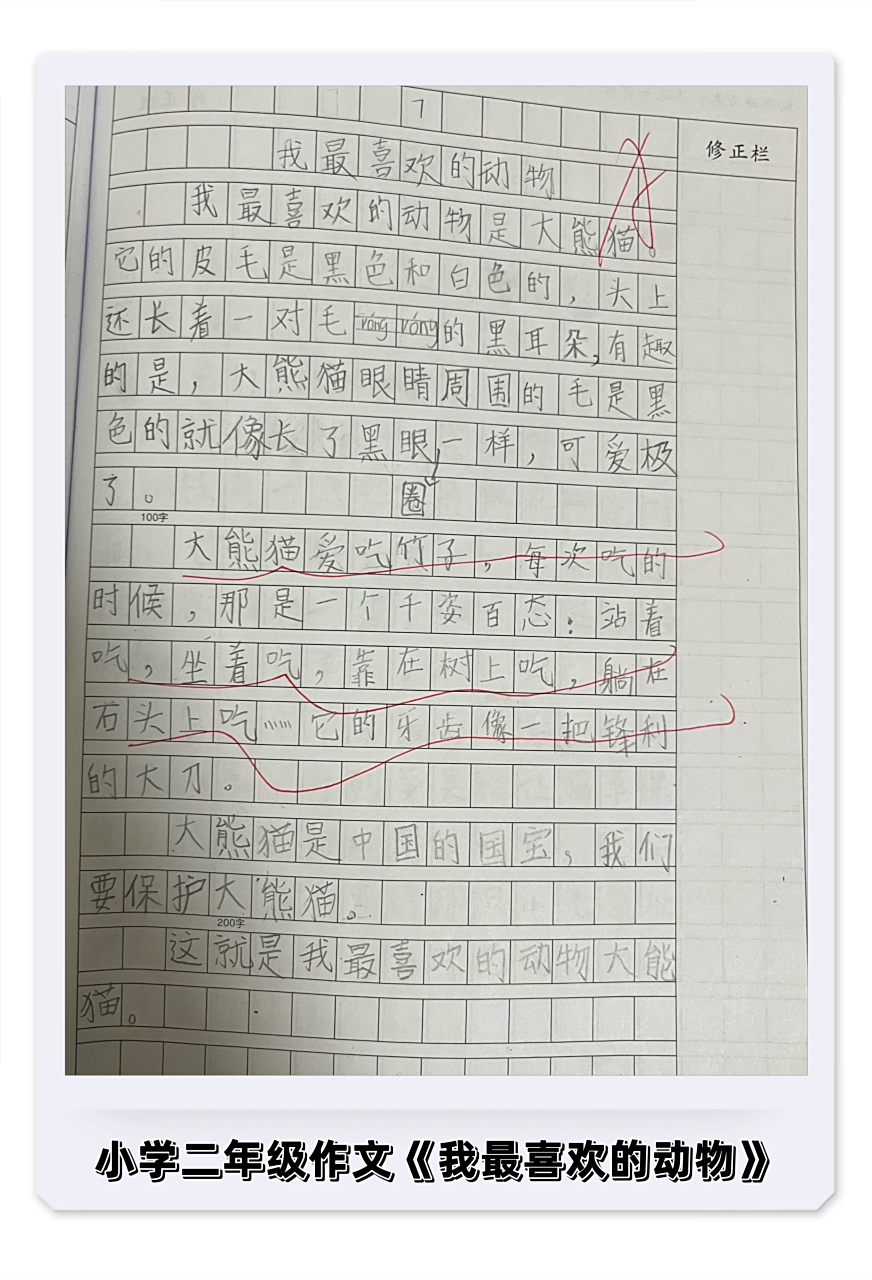 7
修正栏
我最喜欢的动物
我最喜欢的动物是大熊猫。
它的皮毛是黑色和白色的，头上
还长着一对毛róng róng的黑耳朵,有趣
的是，大熊猫眼睛周围的毛是黑
色的就像长了黑眼一样，可爱极
了。
圈
100字
大熊猫爱吃竹子，每次吃的
时候，那是一个千姿百态：站着
吃，坐着吃，靠在树上吃，躺在
石头上吃……它的牙齿像一把锋利
的大刀。
大熊猫是中国的国宝，我们
要保护大熊猫。
200字
这就是我最喜欢的动物大能
猫。
小学二年级作文《我最喜欢的动物》